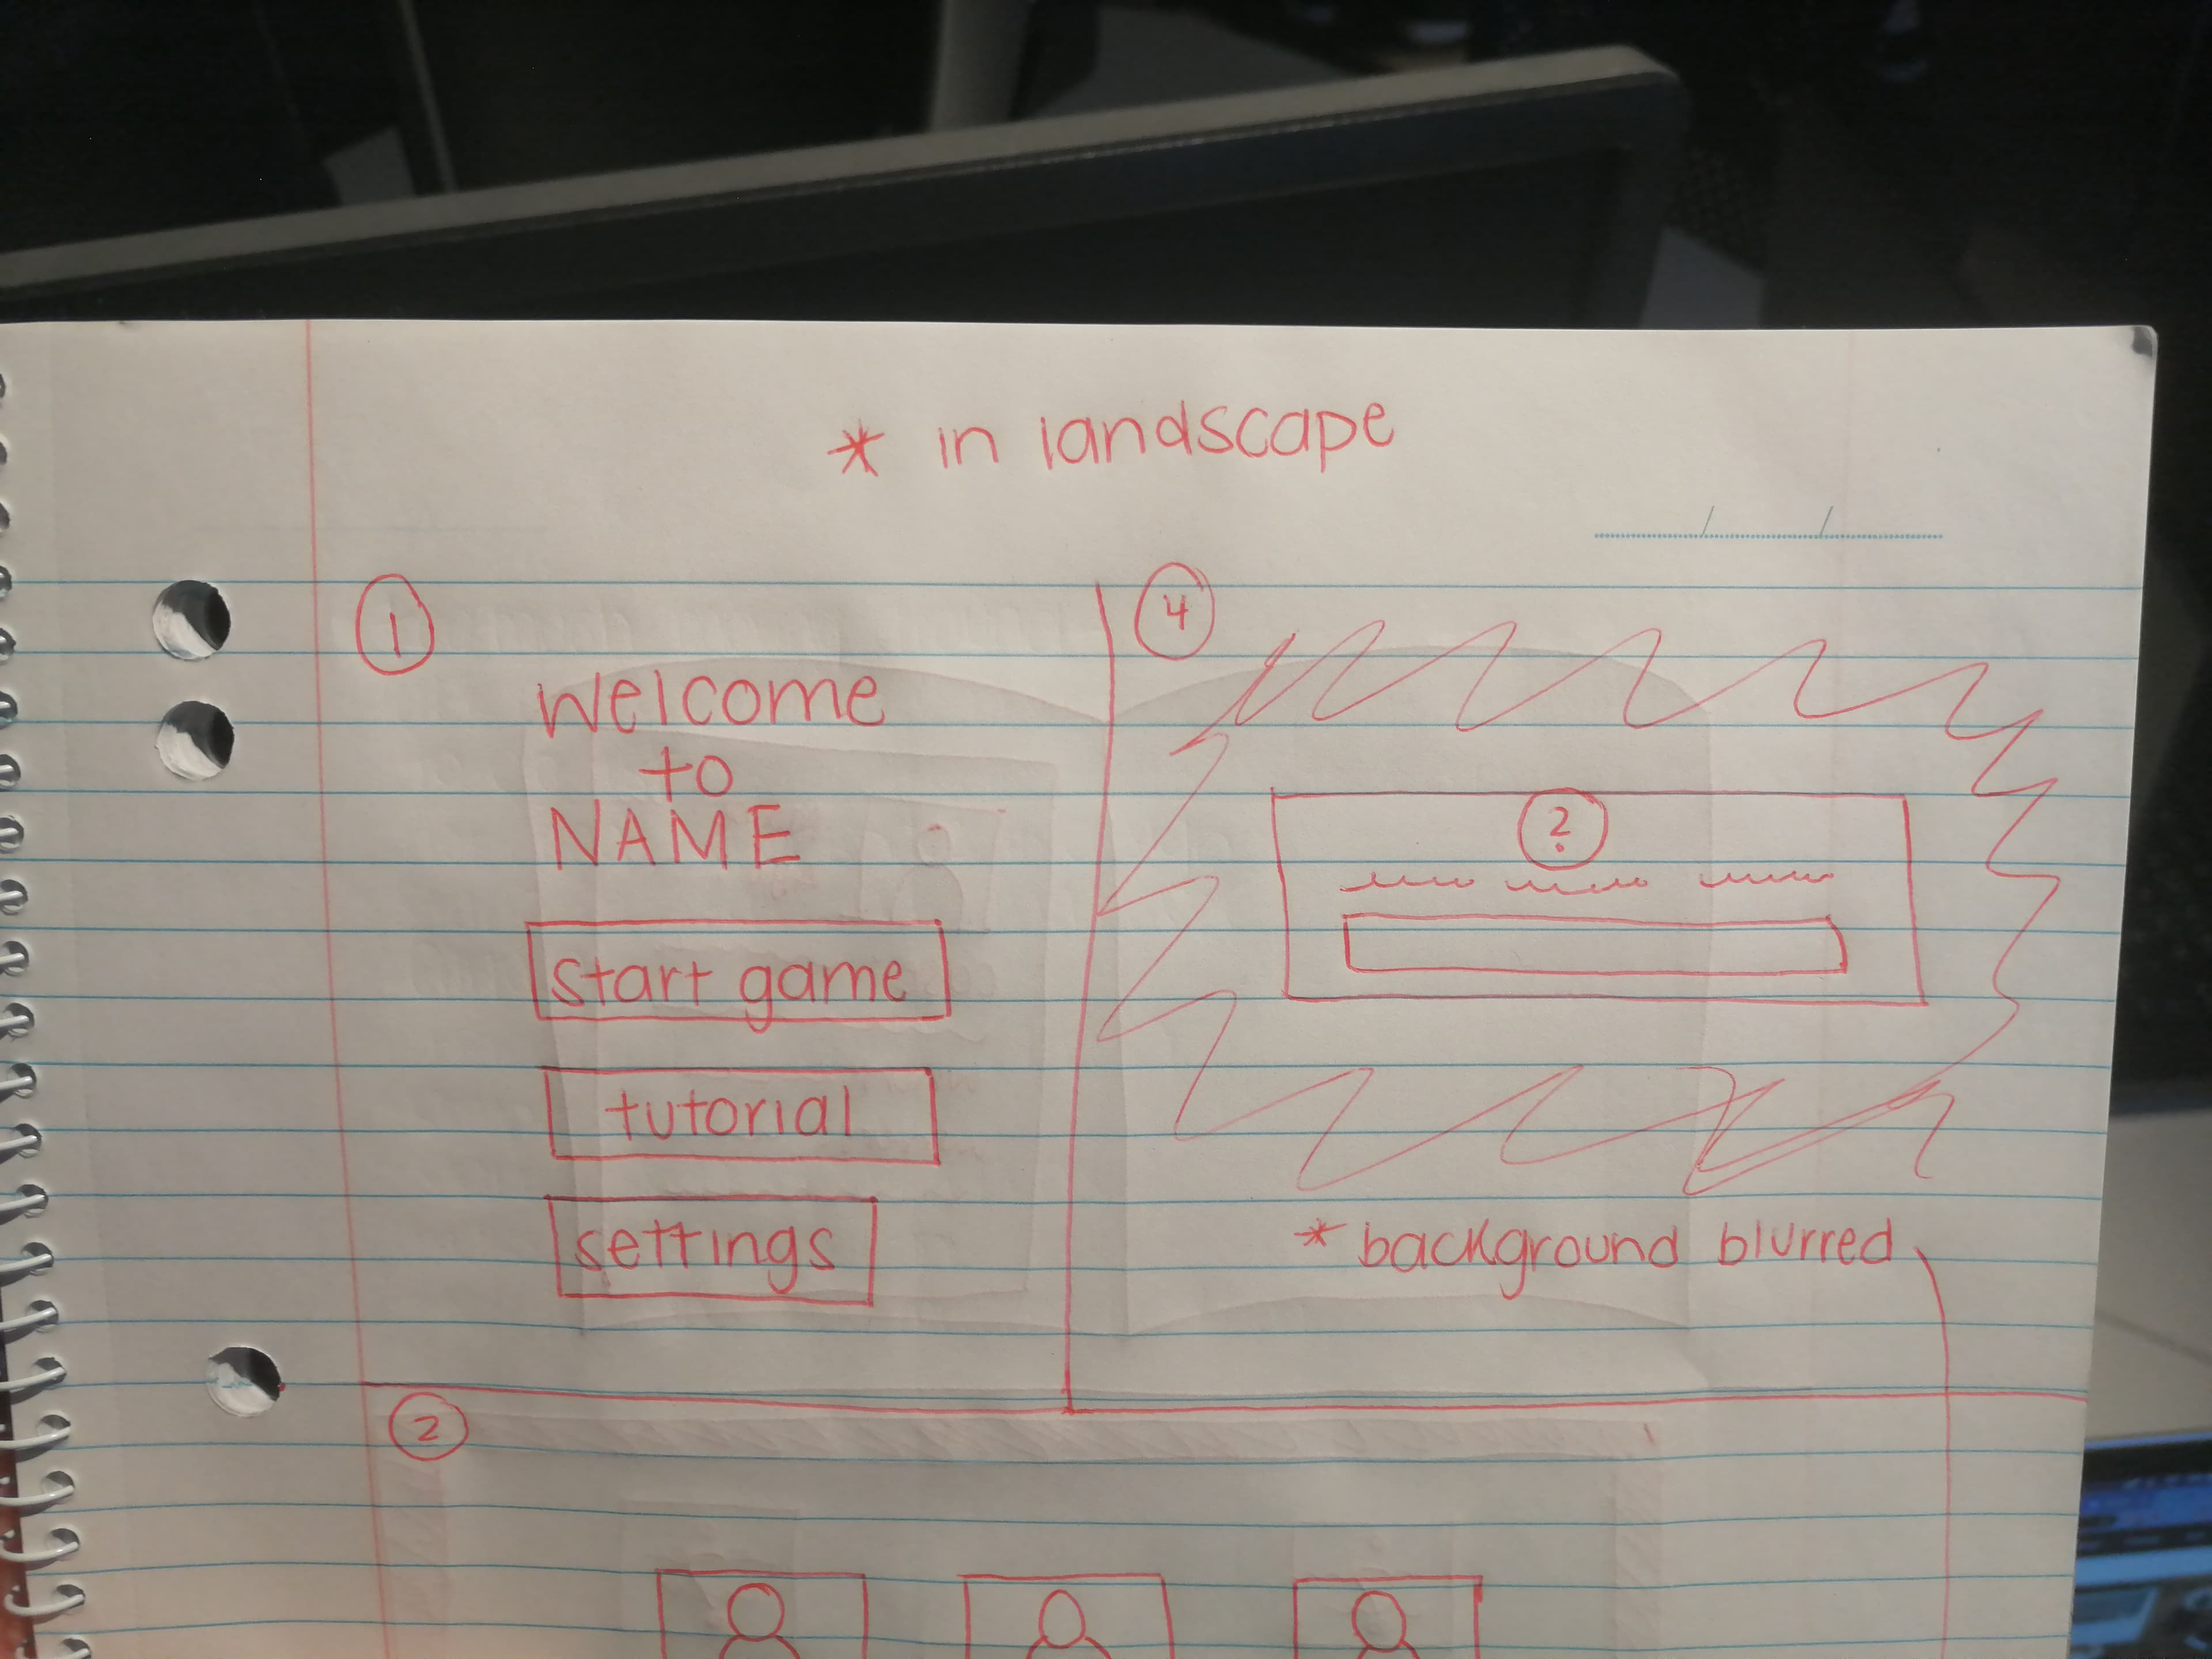 * in landscape
1
welcome
to
NAME
start game
tutorial
settings
4
?
* background blurred
2